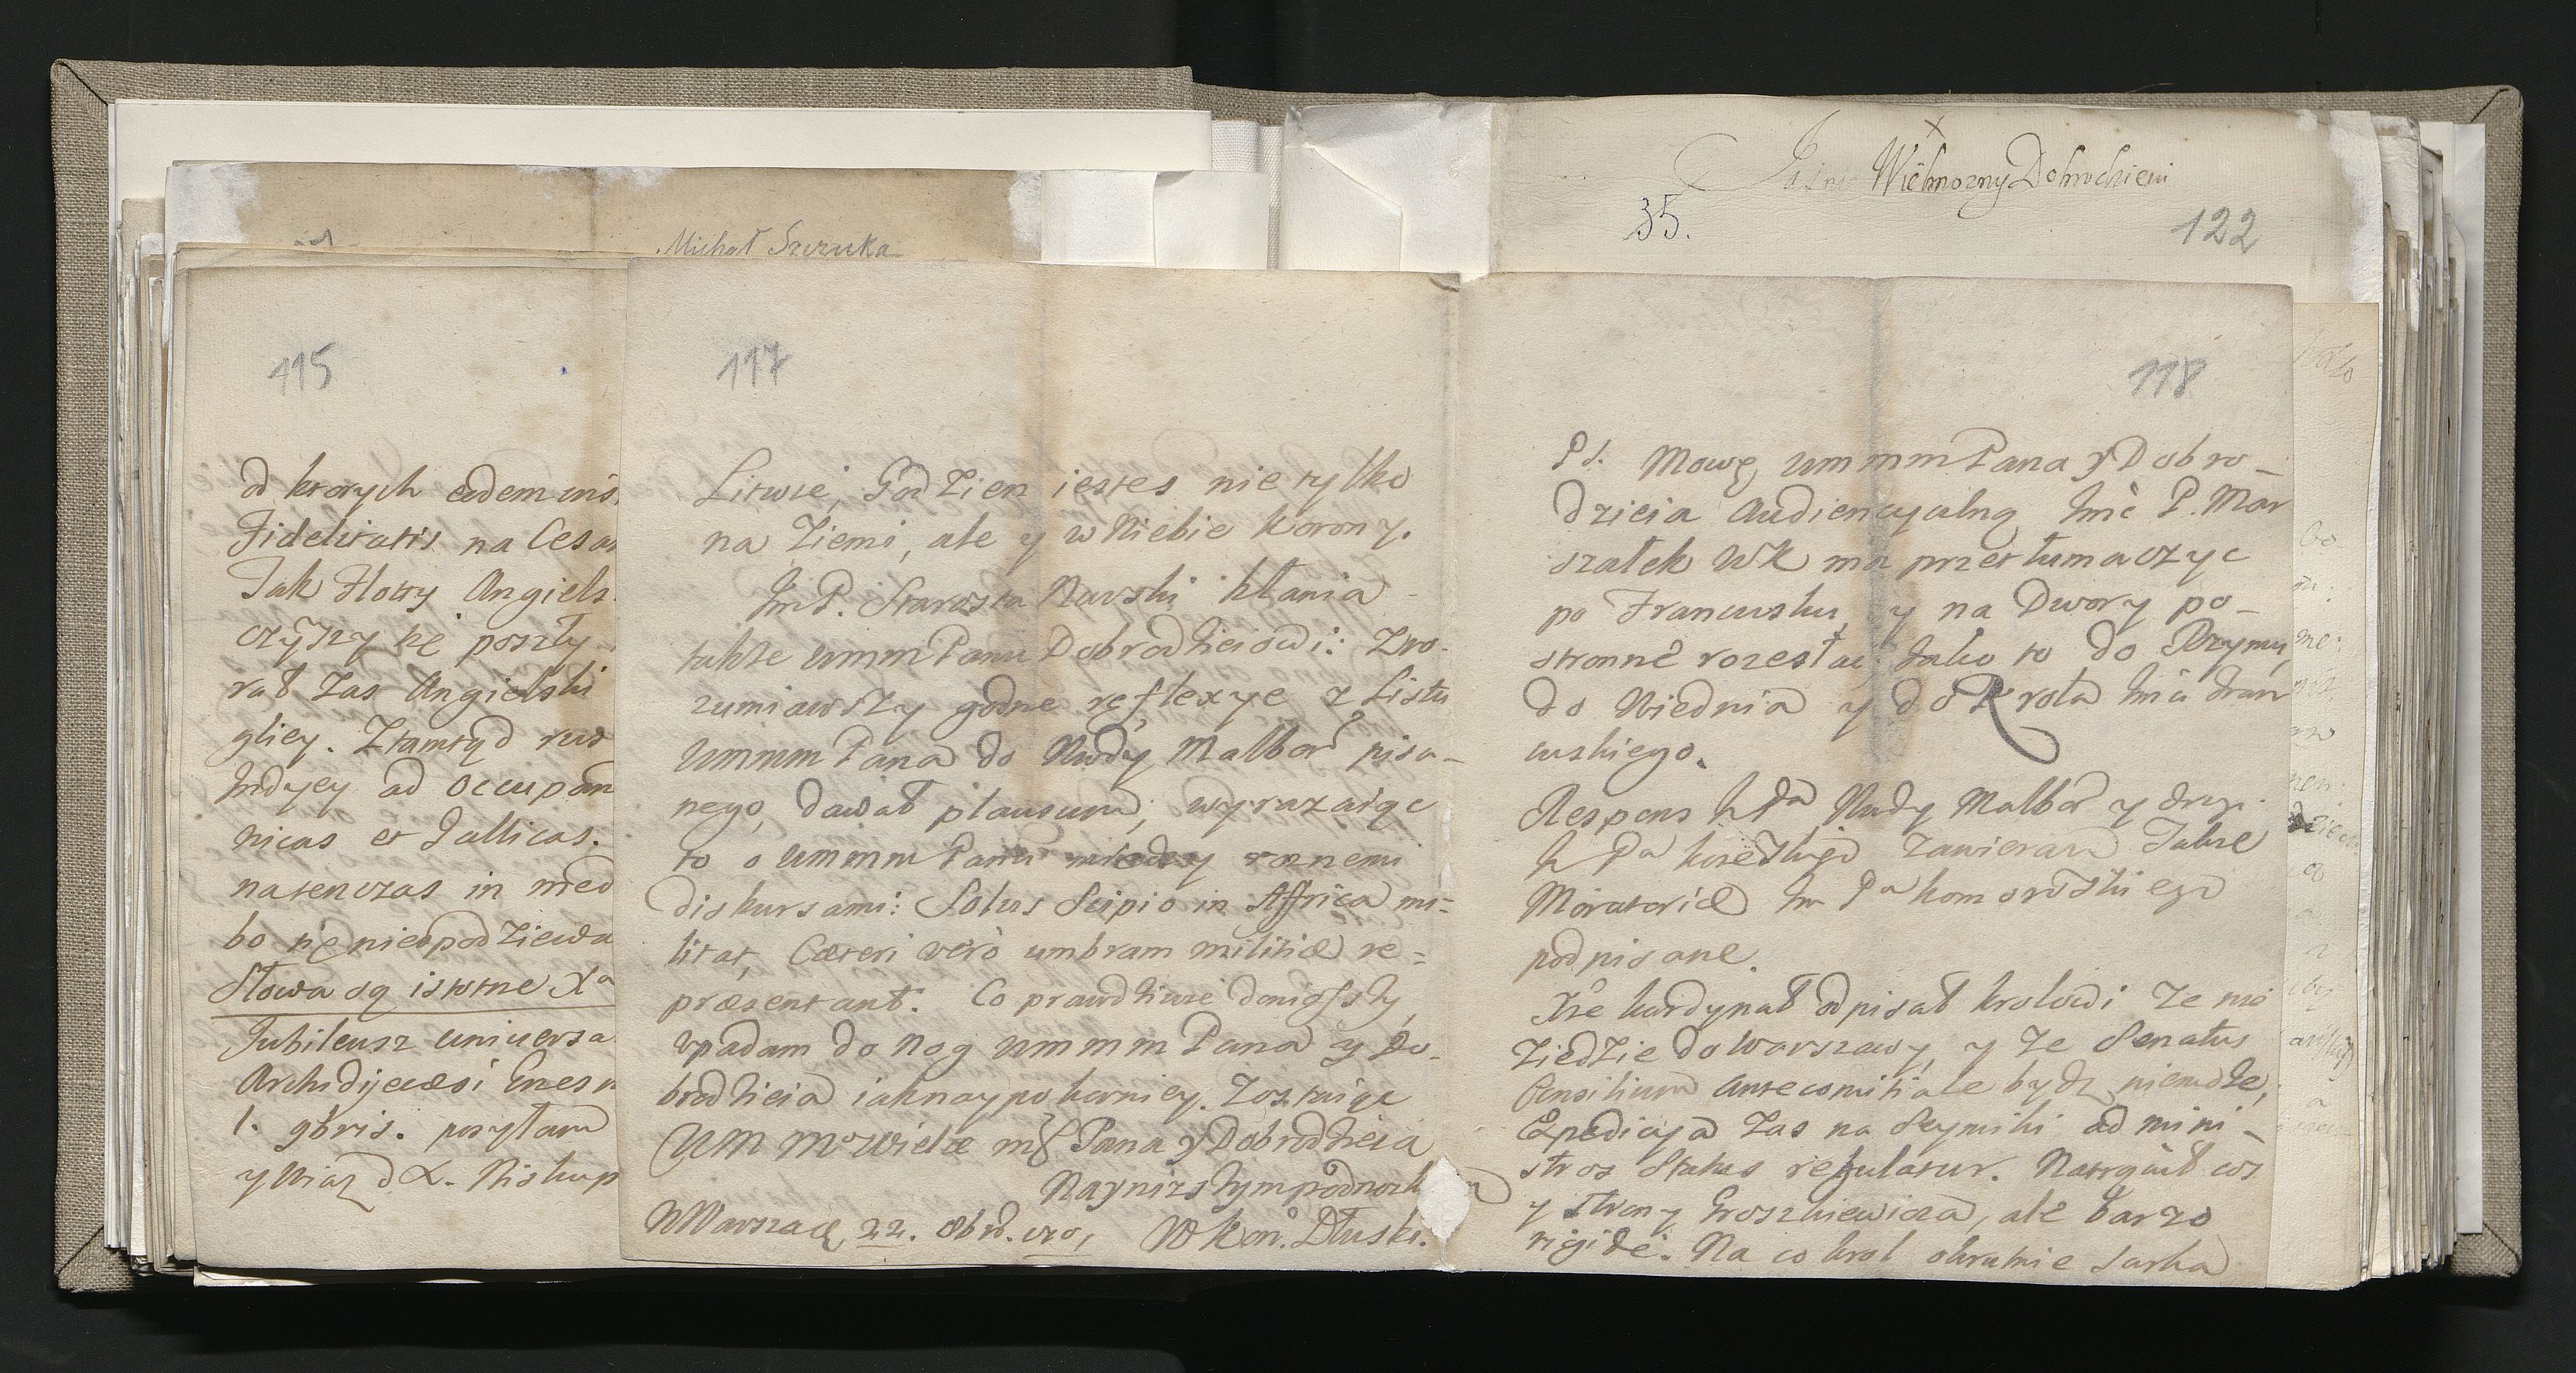 Michał Szczuka
Jaśnie Wielmozny Dobrodzieiu
35.
122
115
od ktorych eadem ins.
Fidelitatis na Cesar
Tak Flotty Angiels.
poszły
rał zas Angielski
gliey. Ztamtyd
Indyey ad occupan
nicas et Gallicas.
natenczas in med
bo się niespodziewa
Słowa są istotne Xa
Jubileusz uniuersa
Archidijecaesi Gnesn
1. 9bris. posyłam
y Wiazd X. Biskup
117
Litwie, Godzien iestes nie tylko
na Ziemi, ale y w Niebie Korony.
ImP. Starosta Nurski kłania
takze UmmmPanu Dobrodzieiowi: Zro-
zumiawszy godne reflexye z Listu
Ummm Pana do Rady Malbor pisa-
nego, dawał plausum, wyrazaiąc
to o Ummm Panu między roznemi
diskursami: Solus Scipio in Affrica mi=
litat, Cæteri verò umbram militiæ re=
præsentant. Co prawdziwie doniosszy,
vpadam do nog Ummm Pana y Do-
brodzieia iaknaypokorniey. Zostaiąc
UM Mo Wielce mgo Pana y Dobrodzieia
Naynizszym podnozk
WWarszae 22. 8br. W Kom. Dłuski.
118
Ps. Mowę UmmmPana y Dobro-
dzieia Audiencyalną Imć P. Mar
szałek WK ma przetłumaczyc
po Francusku, y na Dwory po-
stronne rozesłac: Jako to do Rzymu,
do Wiednia y do Krola Imci Fran
cuskiego.
Respons Rady Malbor y drugi
zawieram Takze
Moratoriæ Im Pa Komorowskiego
podpisane.
Xże Kardynał odpisał krolowi ze nie
ziedzie do Warszawy, y ze Senatus
Consilium Antecomitiale bydz niemoze,
Expedicya zas na Seymiki ad mini-
stros Status regulatur. Natrącił cos
y strony Groszkiewicza, ale barzo
rigide. Na co krol okrutnie sarka